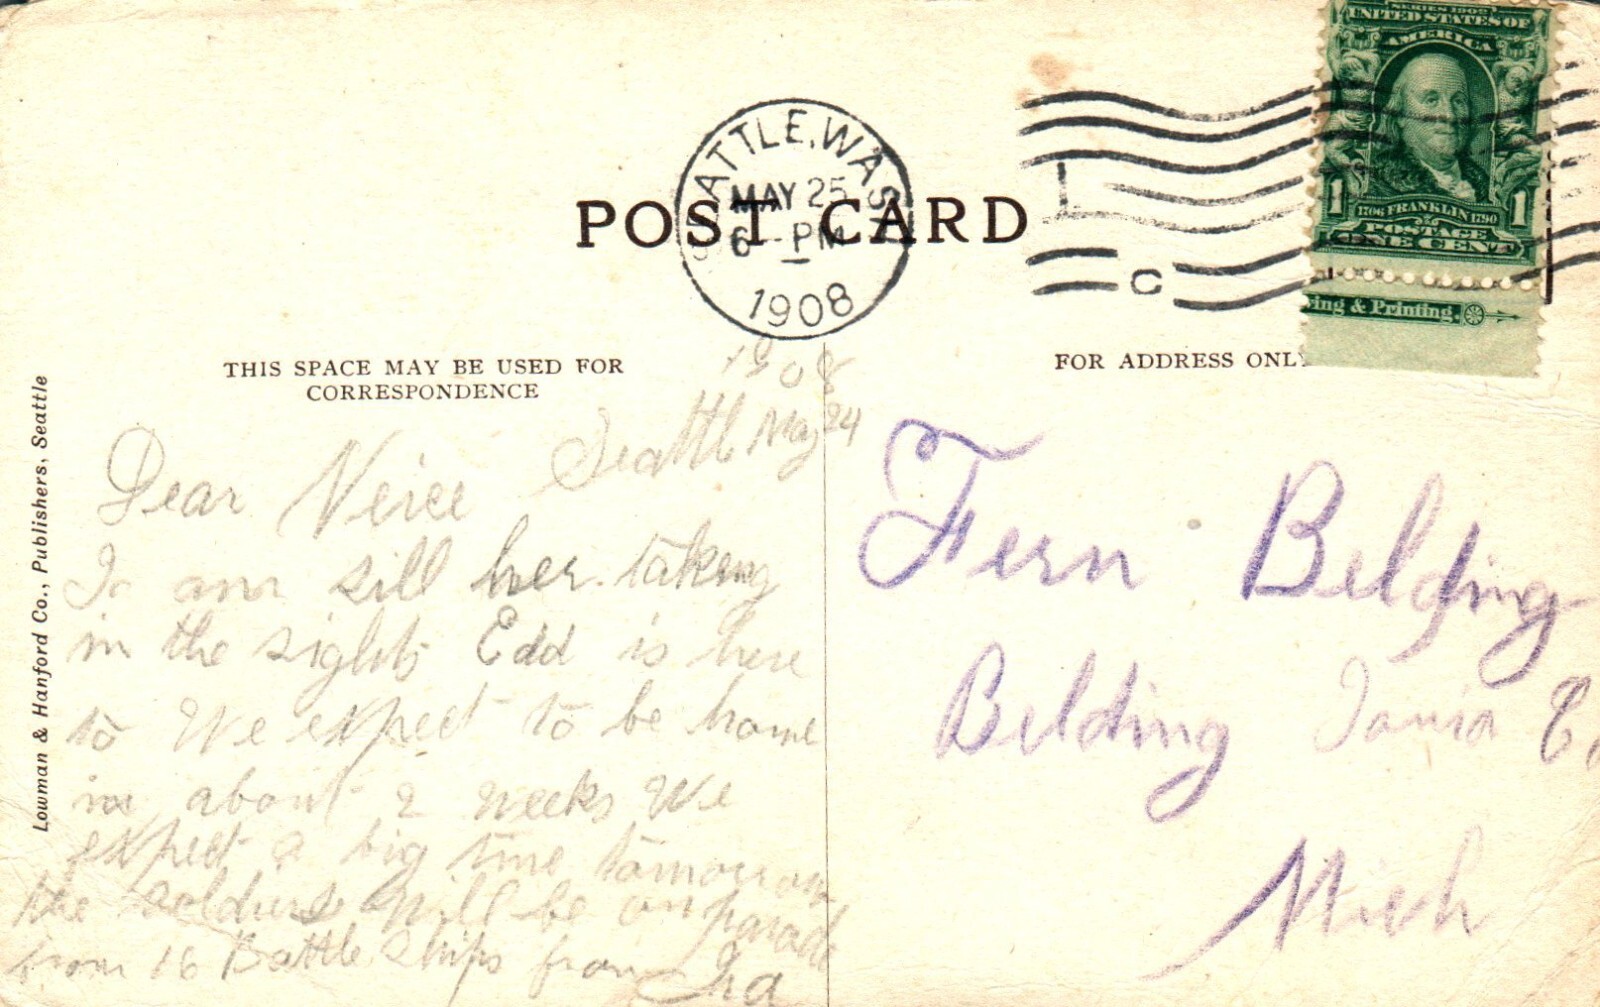 SERIES 1902
UNITED STATES OF
AMERICA
1 1706 FRANKLIN 1790 1
POSTAGE
ONE CENT
ing & Printing.
SEATTLE, WASH.
MAY 25
6 - PM
1908
C
POST CARD
THIS SPACE MAY BE USED FOR
CORRESPONDENCE
FOR ADDRESS ONLY
Lowman & Hanford Co., Publishers, Seattle
1908
Seattle May 24
Dear Neice
I am sill her taking
in the sights Edd is here
to We expect to be home
in about 2 weeks We
expect a big time tomorrow
the soldiers will be on parade
from 16 Battle Ships from Ira
Fern Belding
Belding Ionia Co.
Mich